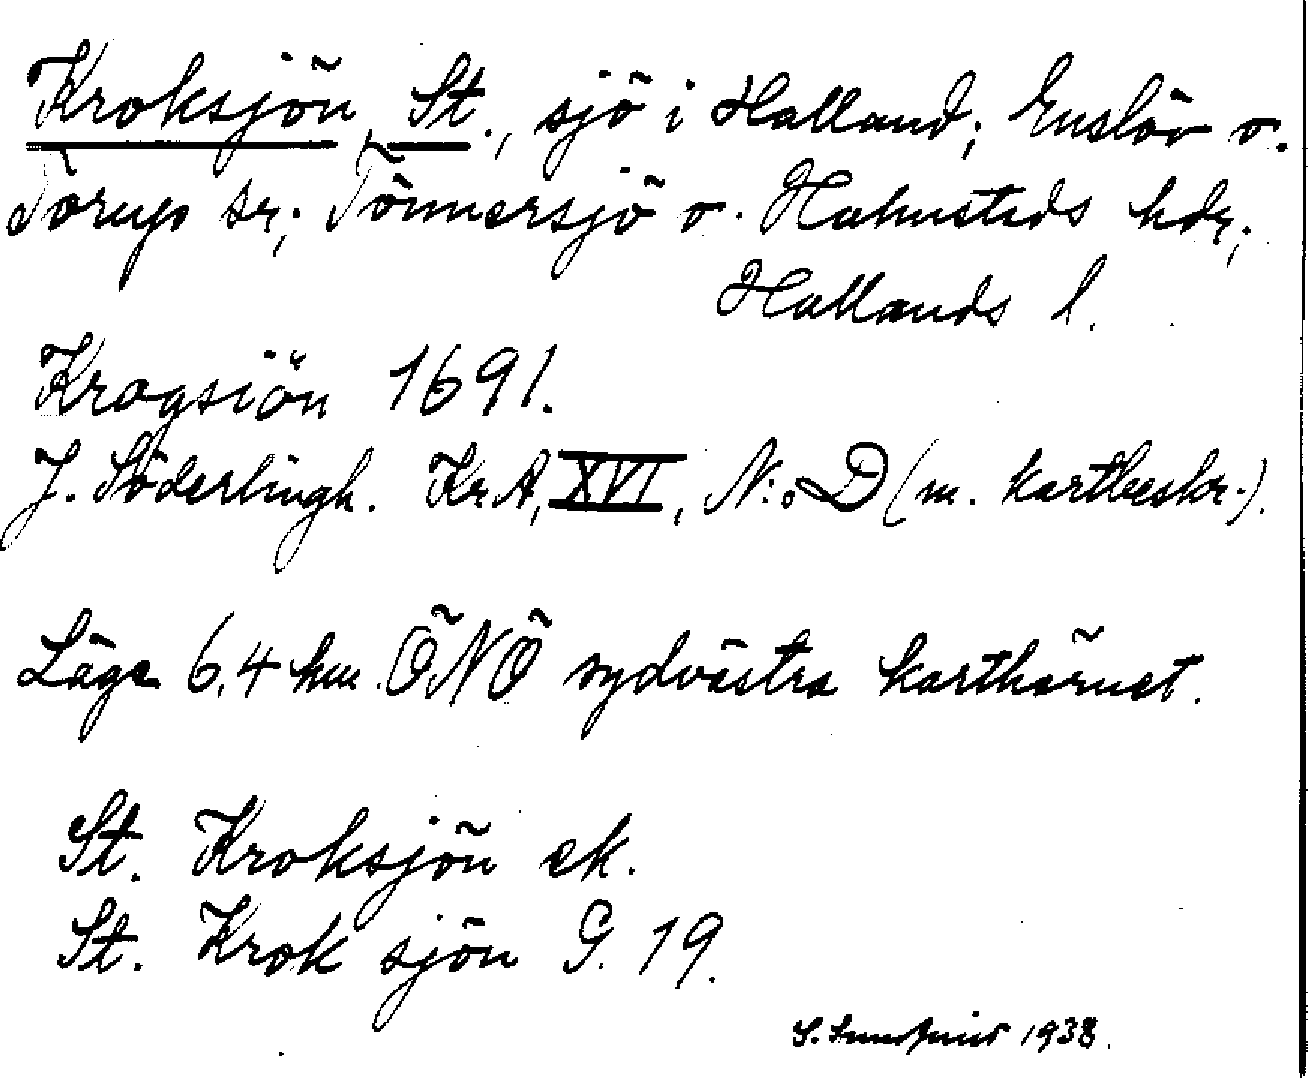 Kroksjön, St., sjö i Halland; Enslöv o.
Torups sr; Tönnersjö o. Halmstads hdr;
Hallands l.
Krogsiön 1691.
J. Söderlingh. Kr.A, XVI, N:o D (m. kartbeskr.).
Läge 6,4 km ÖNÖ sydvästra karthörnet.
St. Kroksjön ek.
St. Krok sjön G. 19.
S. Sundquist 1938.